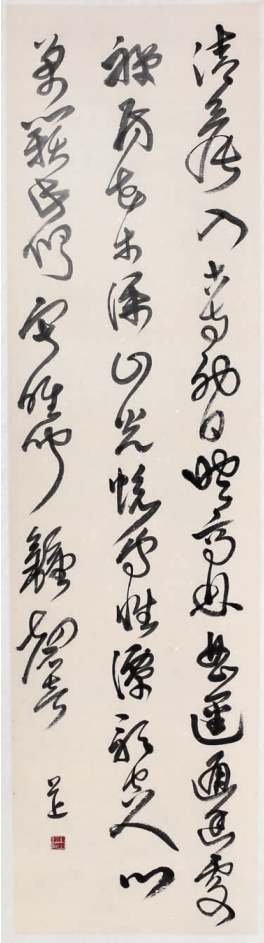 清晨入古寺初日照高林曲逕通幽處
禪房花木深山光悦鳥性潭影空人心
萬籟此俱寂唯聞鐘磬音